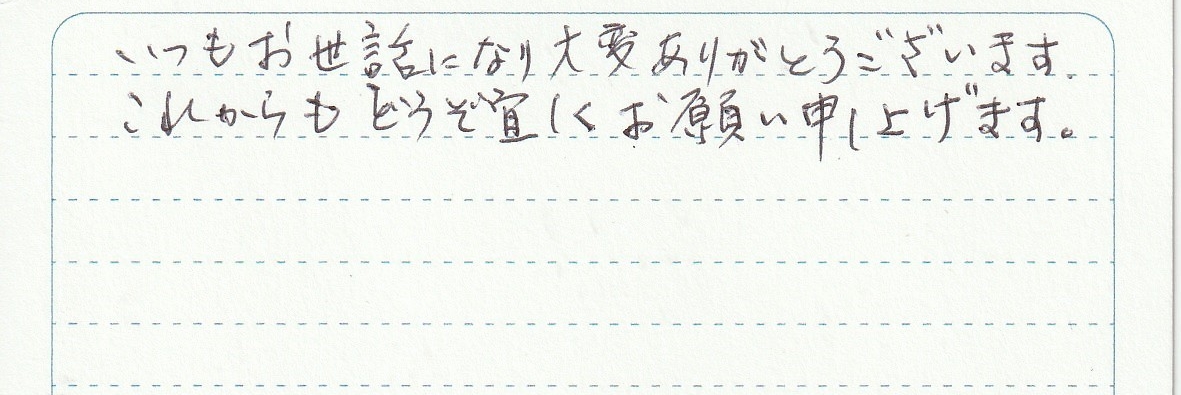 いつもお世話になり大変ありがとうございます.
これからもどうぞ宜しくお願い申し上げます。